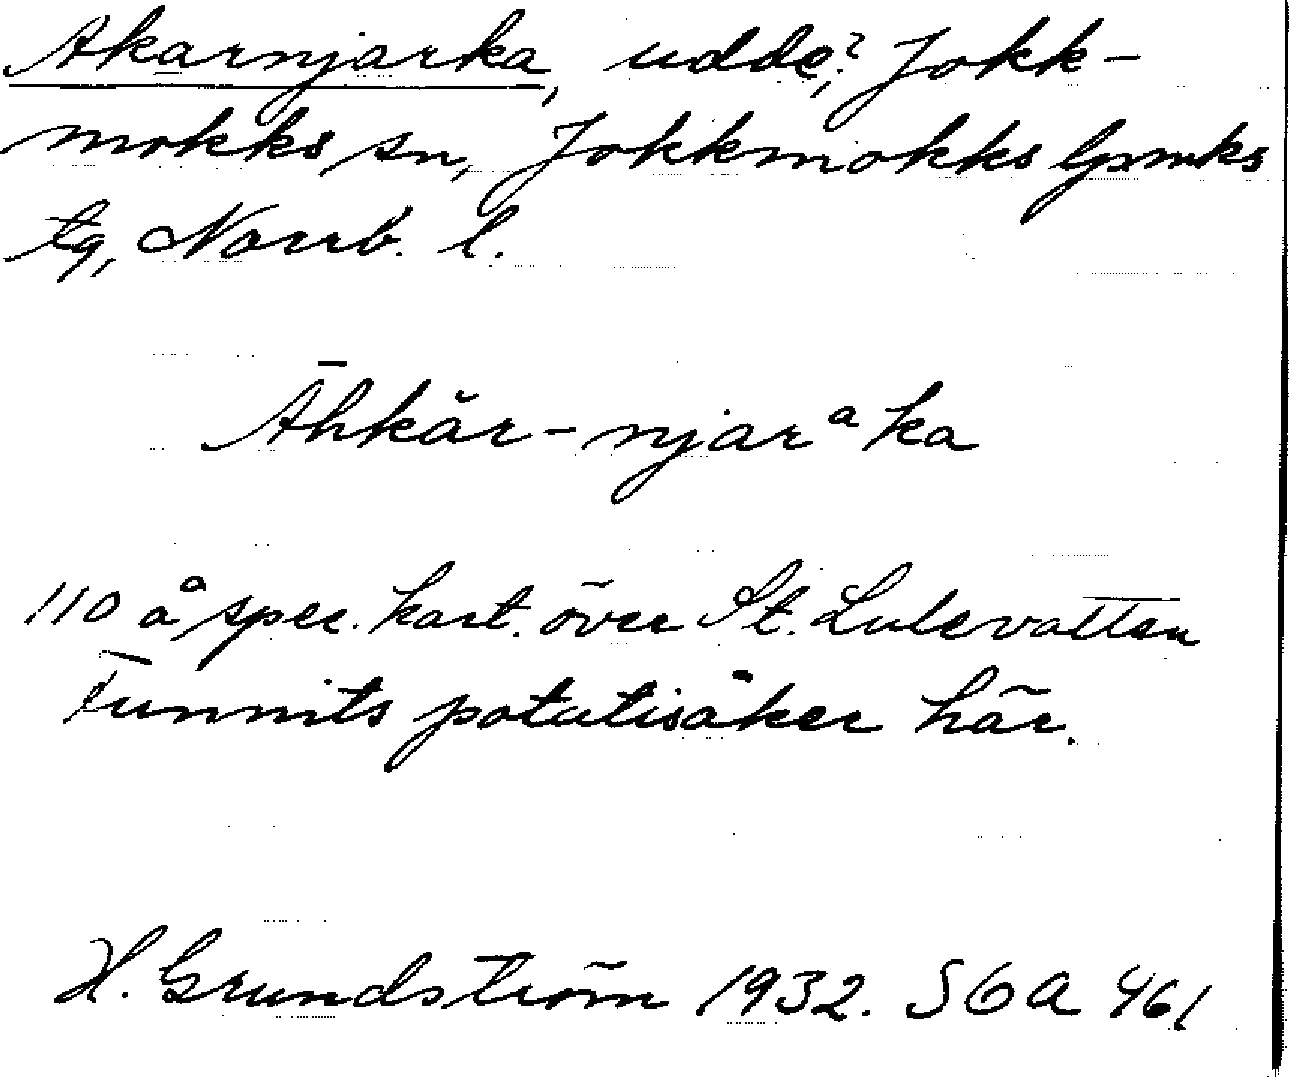 Akarnjarka, udde,? Jokk-
mokks sn, Jokkmokks lpmks
tg, Norrb. l.
Āhkăr-njarᵃka
110 å spec. kart. över St. Lulevatten
Funnits potatisåker här.
H. Grundström 1932. SGA 461